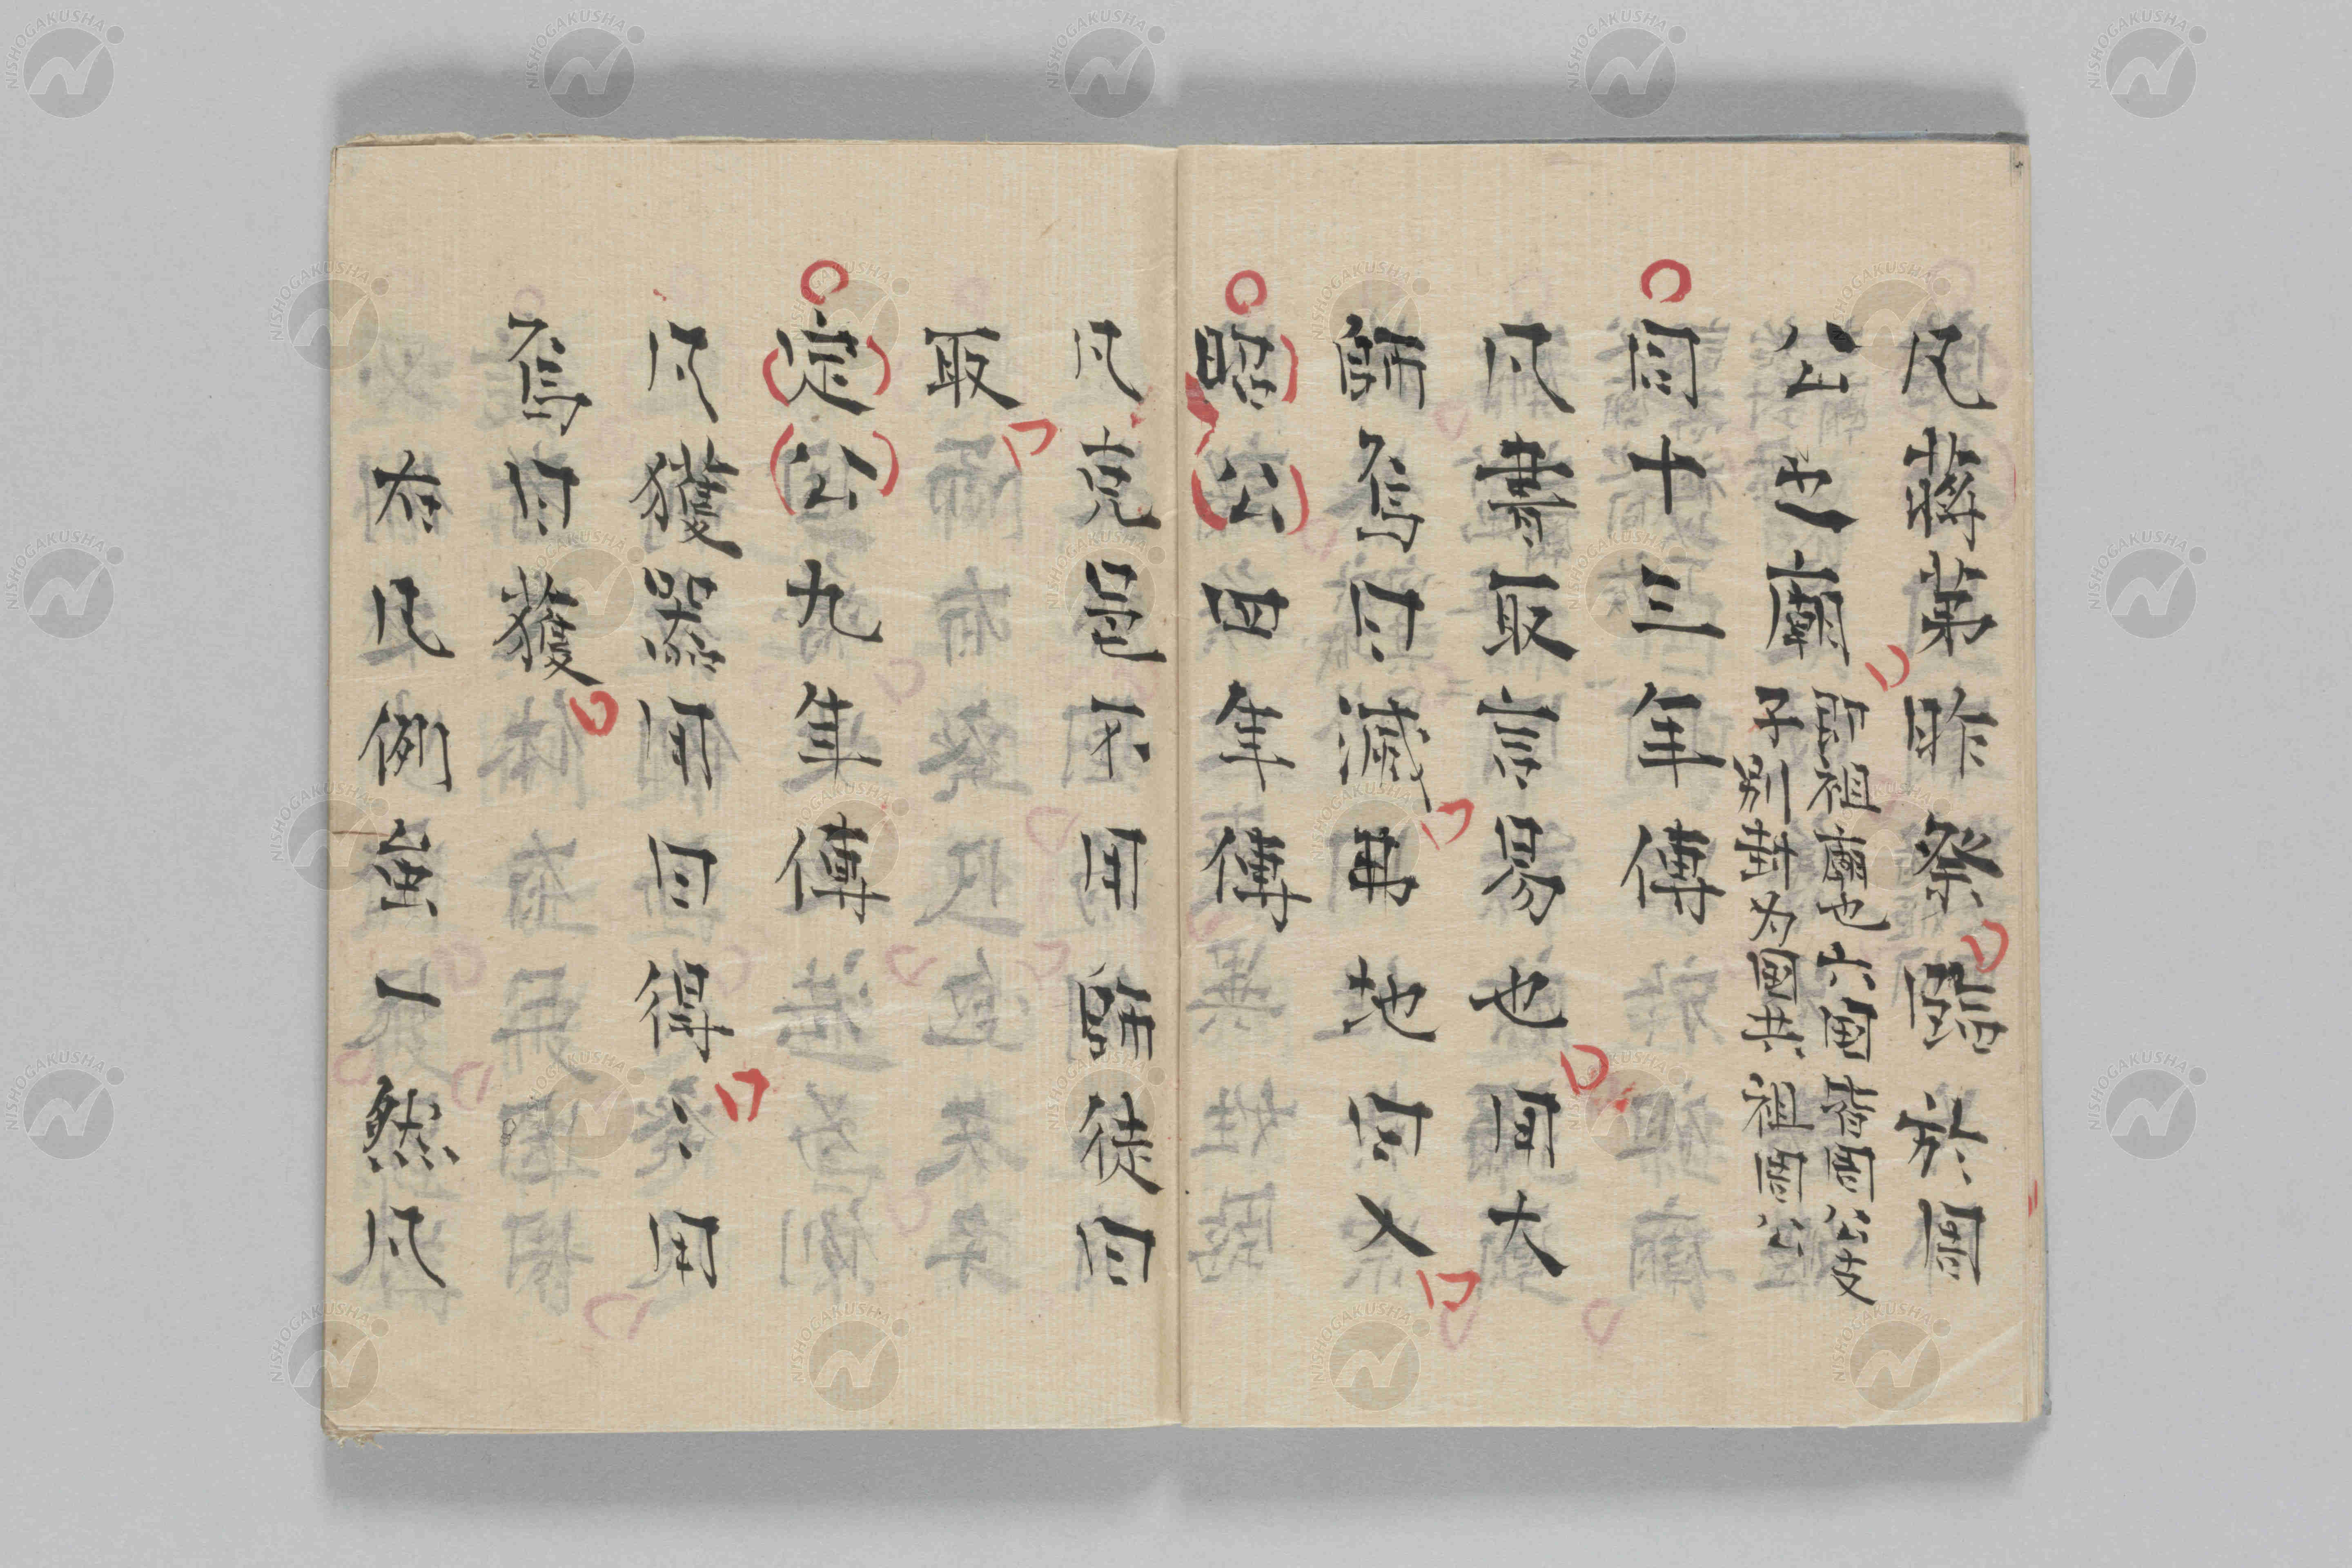 凡蔣茅胙祭臨於周
公之廟
即祖廟也六國皆周公支
子別封为國共祖周公
同十三年傳
凡書取言易也用大
師焉曰滅弗地曰入
昭公四年傳
凡克邑不用師徒曰
取
定公九年傳
凡獲器用曰得〻用
焉曰獲
右凡例一然凡